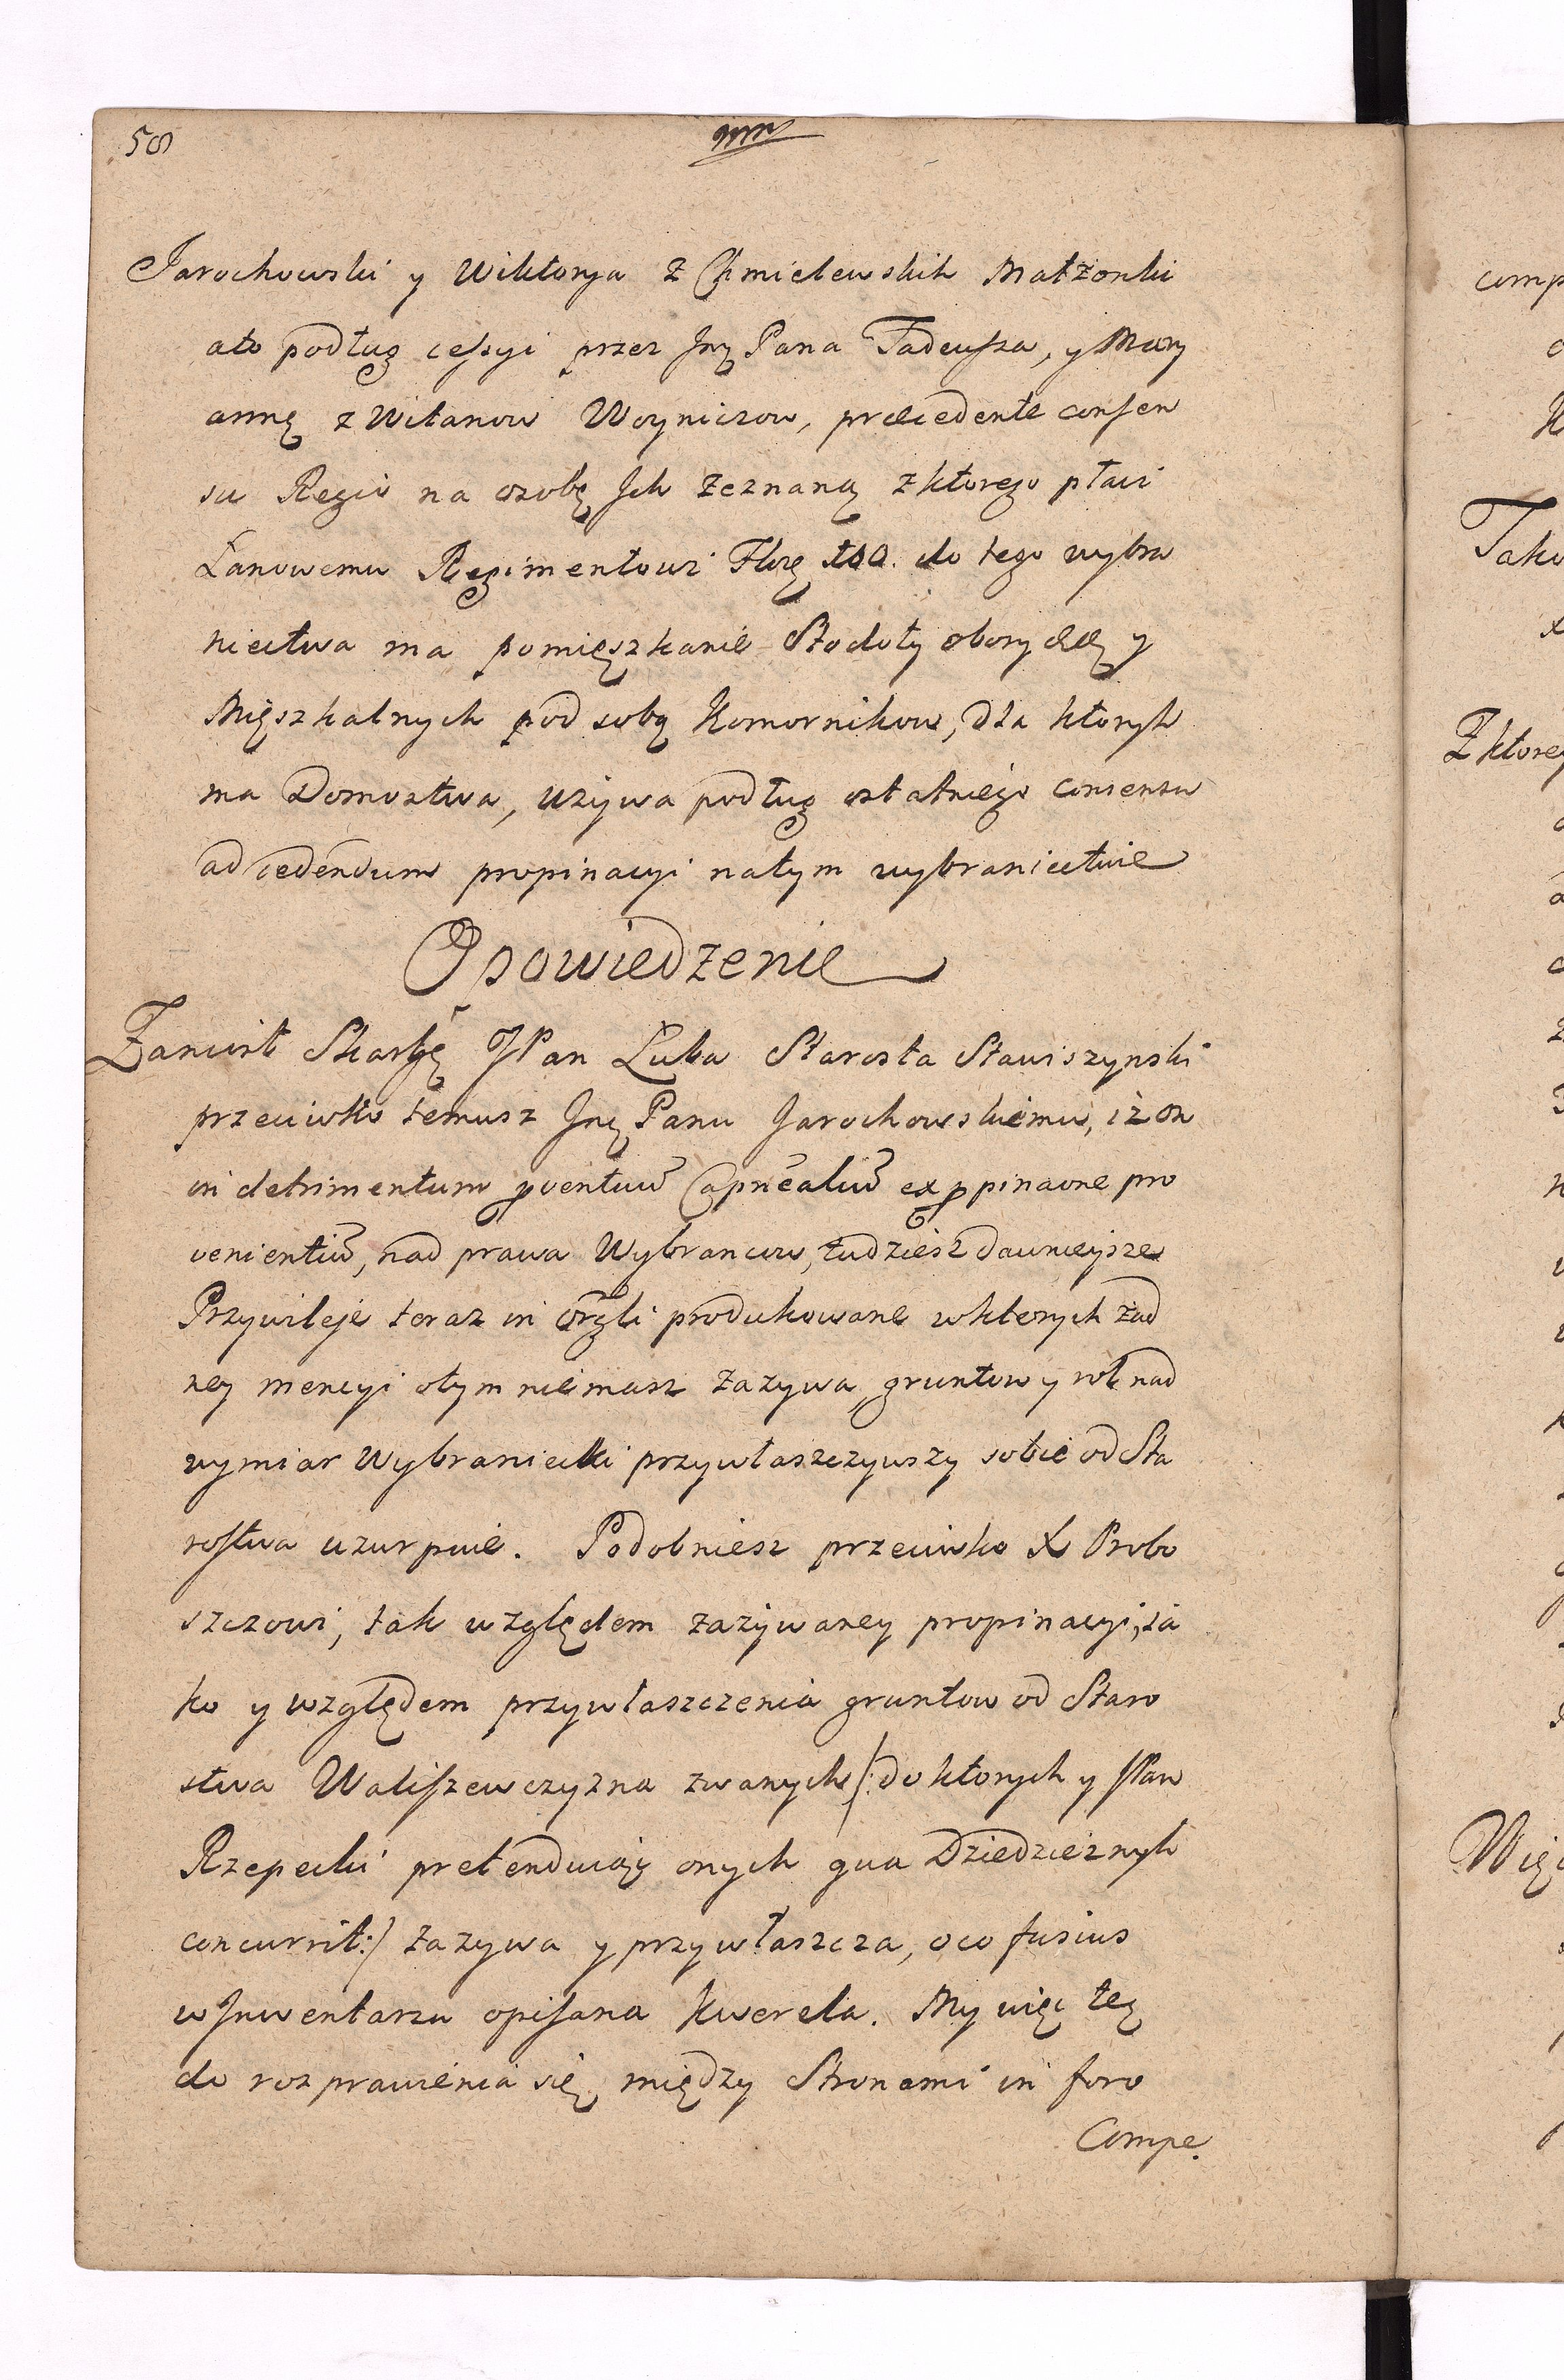 58
Jarochowski y Wiktorya z Chmielewskich Małżonki
ato podług cessyi przez Jmę Pana Tadeusza, y Mary
annę z Witanow Woyniczow, præcedente consen
su Regio na osobę Jch zeznaną z ktorego płaci
Łanowemu Regimentowi Florę 100. do tego wybra
niectwa ma pomięszkanie Stodoły obory &c y
Mięszkalnych pod sobą Komornikow, dla ktorych
ma Domostwa, uzywa podług ostatniego consensu
ad cedendum propinacyi natym wybraniectwie
Opowiedzenie
Zaniosł Skargę JPan Luba Starosta Stawiszynski
przeciwko temusz Jmę Panu Jarochowskiemu, iż on
in detrimentum pventuũ Capñealiũ ex ppinaone pro
venientiũ, nad prawa Wybrancow, tudziesz dawnieysze
Przywileje teraz in orgli produkowane wktorych żad
ney mencyi otym niemasz zazywa, gruntow y rol nad
wymiar Wybraniecki przywłaszczywszy sobie od Sta
rostwa uzurpuie. Podobniesz przeciwko X Probo
szczowi, tak względem zazywaney propinacyi, ia
ko y względem przywłaszczenia gruntow od Staro
stwa Waliszewczyzna zwanych /: do ktorych y JPan
Rzepecki pretenduiąc onych qua Dziedzicznych
concurrit :/ zazywa y przywłaszcza, oco fusius
w Jnwentarzu opisana kwerela. My więc tę
do rozprawienia się między Stronami in foro
Compe.
comp
Tako
Z ktorey
Więc